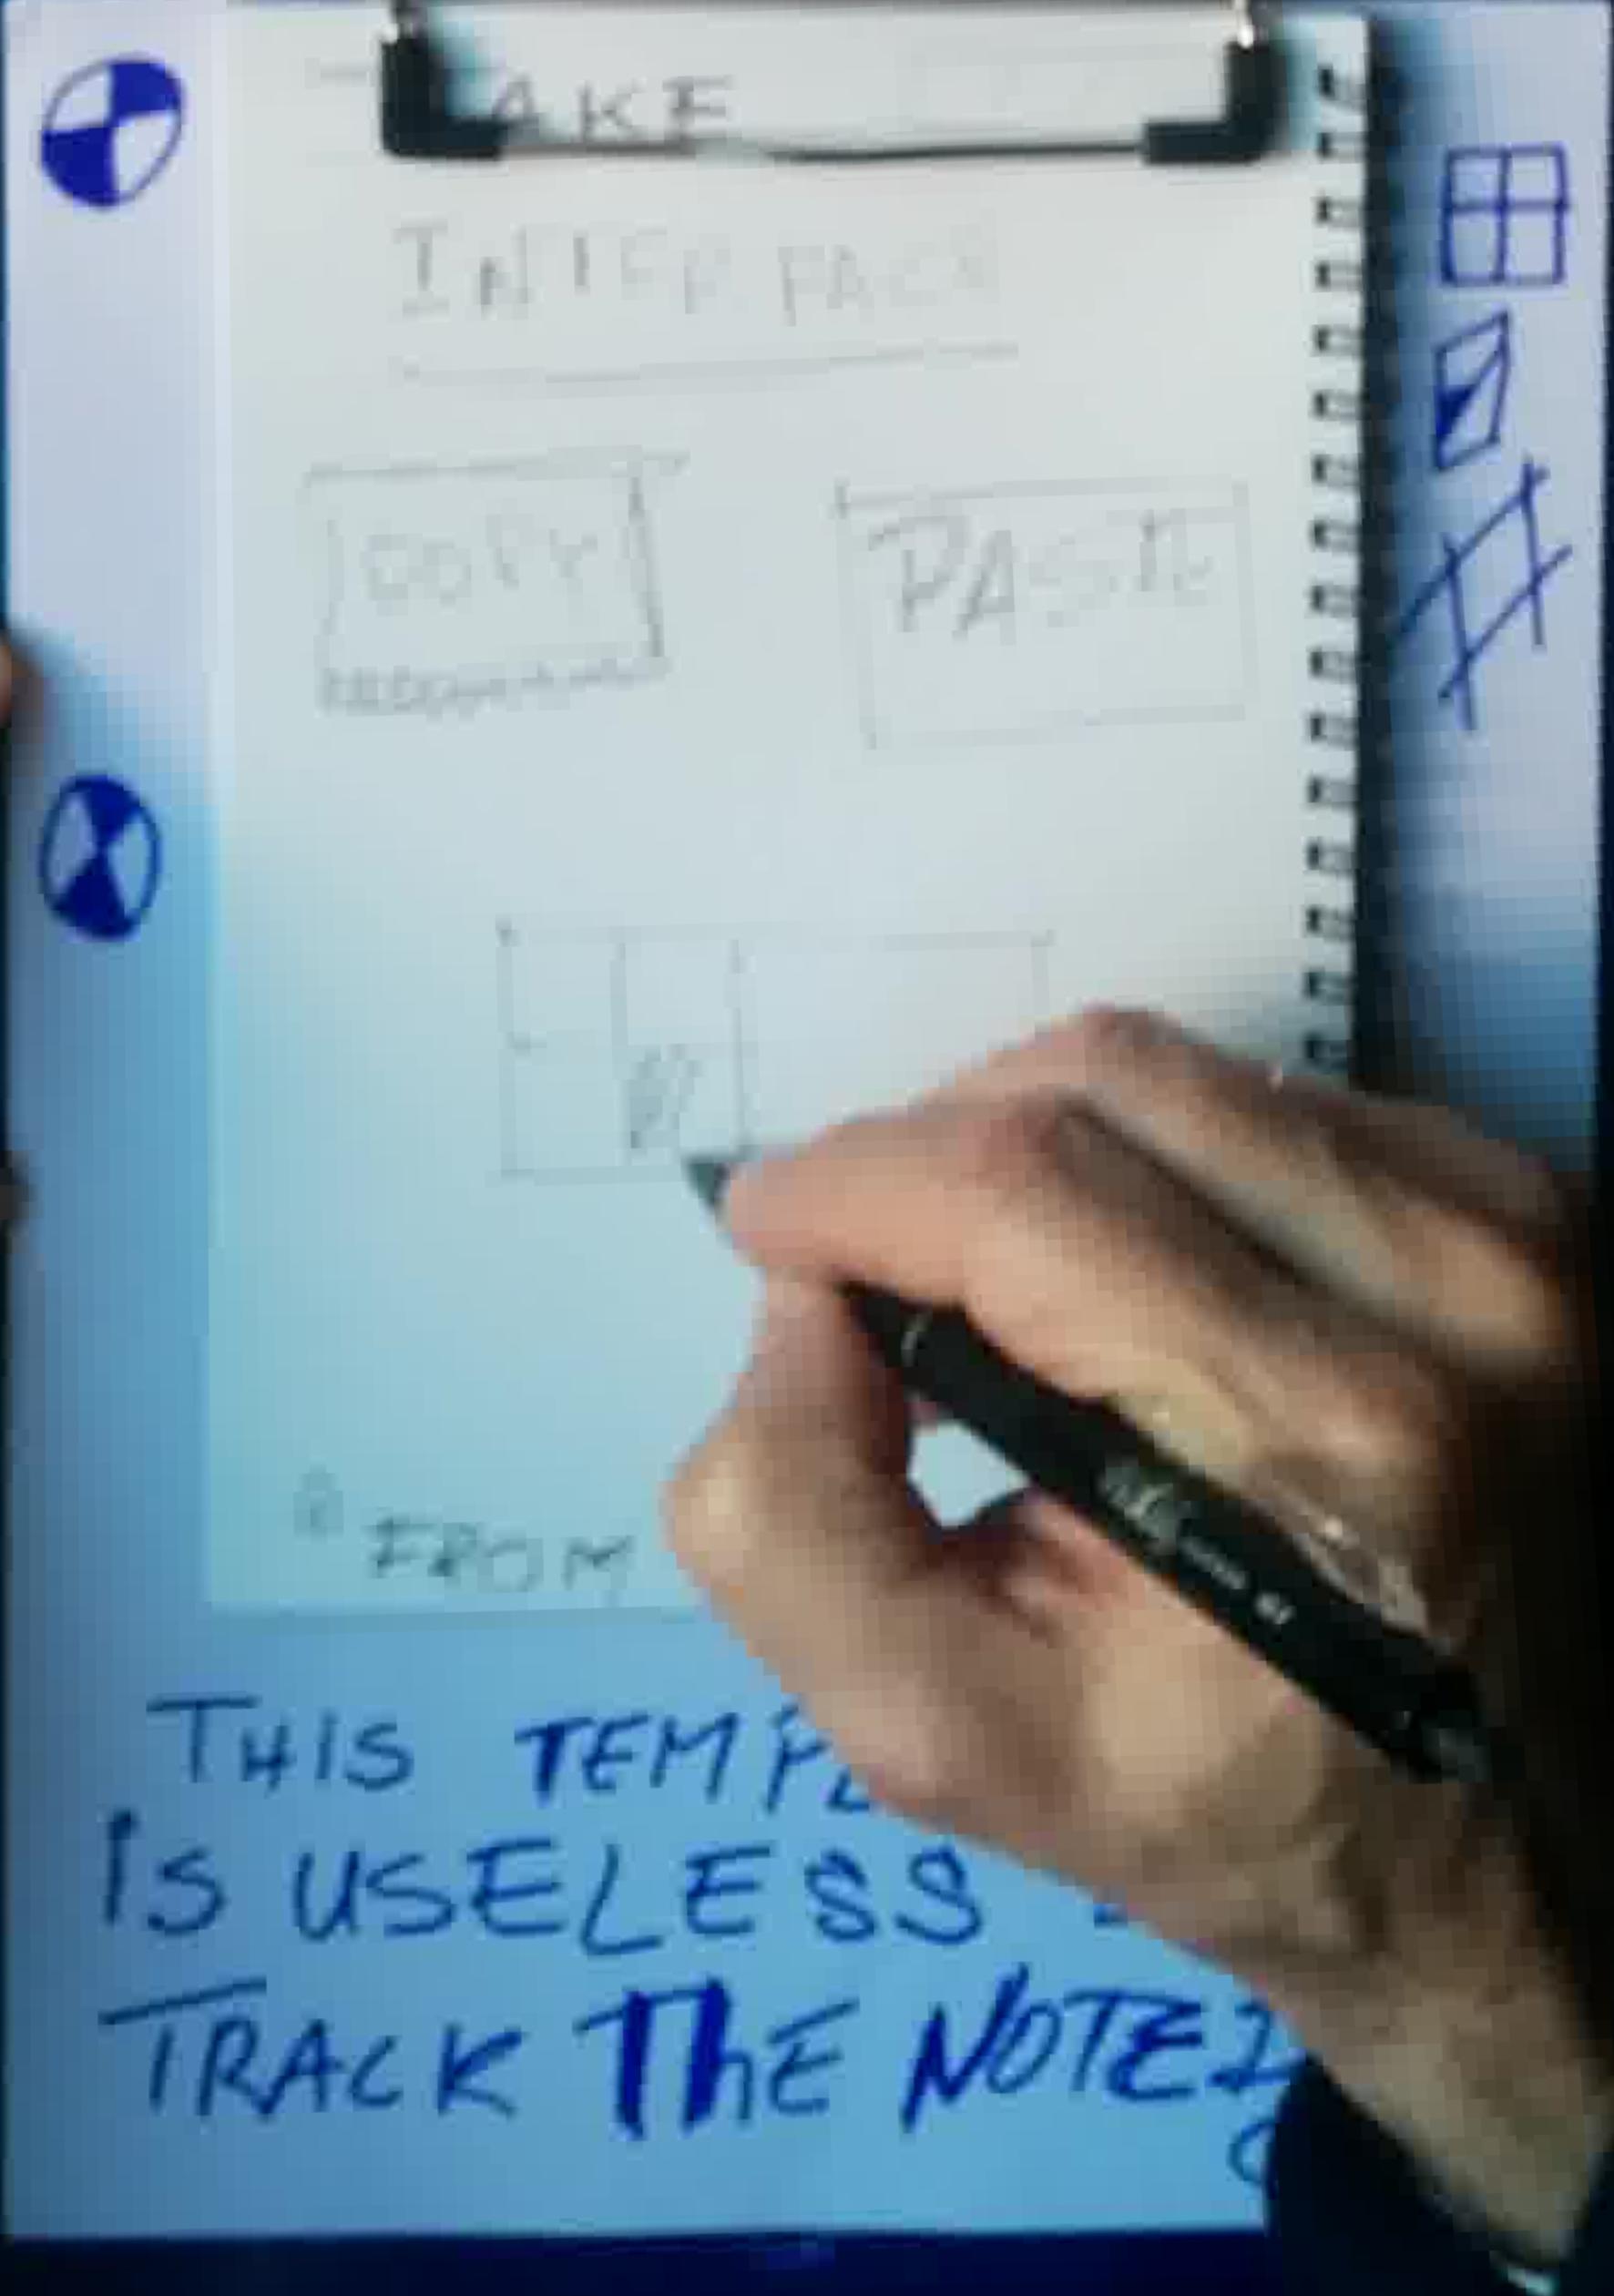 AKE
INTERFACE
COPY
PASTE
FROM
THIS TEMPL
IS USELESS
TRACK THE